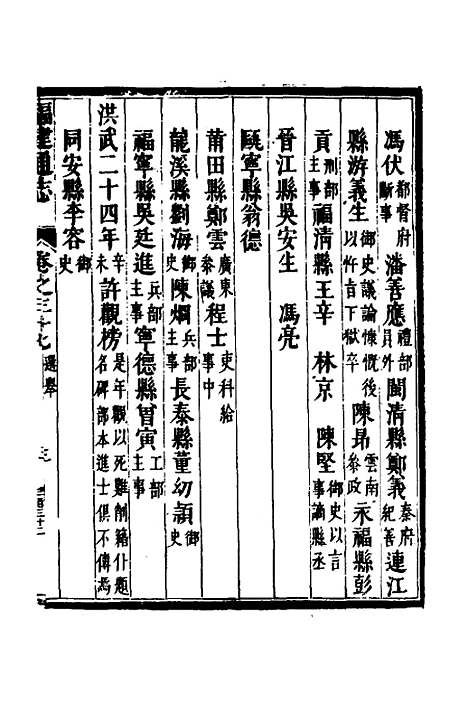 馮伏都督府斷事 潘善應禮部員外 閩清縣鄭義秦府紀善 連江
縣游義生御史議論慷慨後以忤旨下獄卒 陳昂雲南參政 永福縣彭
貢刑部主事 福清縣王辛 林京 陳堅御史以言事謫縣丞
晉江縣吳安生 馮亮
甌寧縣翁德
莆田縣鄭雲廣東參議 程士吏科給事中
龍溪縣劉海御史 陳烱兵部主事 長泰縣董幼穎御史
福寧縣吳廷進兵部主事 寧德縣胃寅工部主事
洪武二十四年辛未許觀榜是年觀以死難削籍什題名碑部本進士俱不傳為
同安縣李容御史
福建通志 卷之三十九 選舉 三